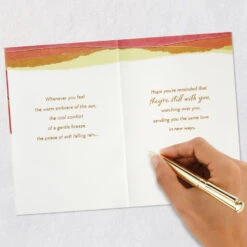 Whenever you feel
the warm embrace of the sun,
the cool comfort
of a gentle breeze,
the peace of still falling rain...
Hope you're reminded that
they're still with you,
watching over you,
sending you the same love
in new ways.